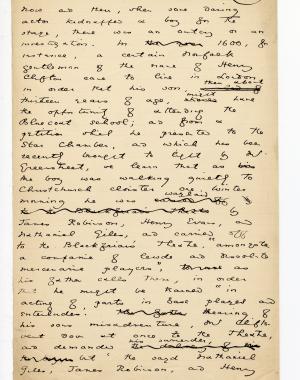 Now and then, when some daring
actor kidnapped a boy for the
stage, there was an outcry or an
investigation. In 1600, for
instance, a certain Norfolk
gentleman of the name of Henry
Clifton came to live in London
in order that his son, then about
thirteen years of age, might have
the opportunity of attending the
Bluecoat school; and from a
petition which he presented to the
Star Chamber, and which has been
recently brought to light by Mr.
Greenstreet, we learn that as
the boy was walking quietly to
Christchurch cloister one winter
morning he was waylaid
by
James Robinson, Henry Evans, and
Nathaniel Giles, and carried off
to the Blackfriars Theatre, "amongste
a companie of lewde and dissolute
mercenarie players," as
his father calls them, in order
that he might be trained "in
acting of parts in base playes and
enterludes." Hearing of
his son's misadventure, Mr. Clifton
went down at once to the Theatre,
and demanded his surrender,
but "the sayd Nathaniel
Giles, James Robinson, and Henry